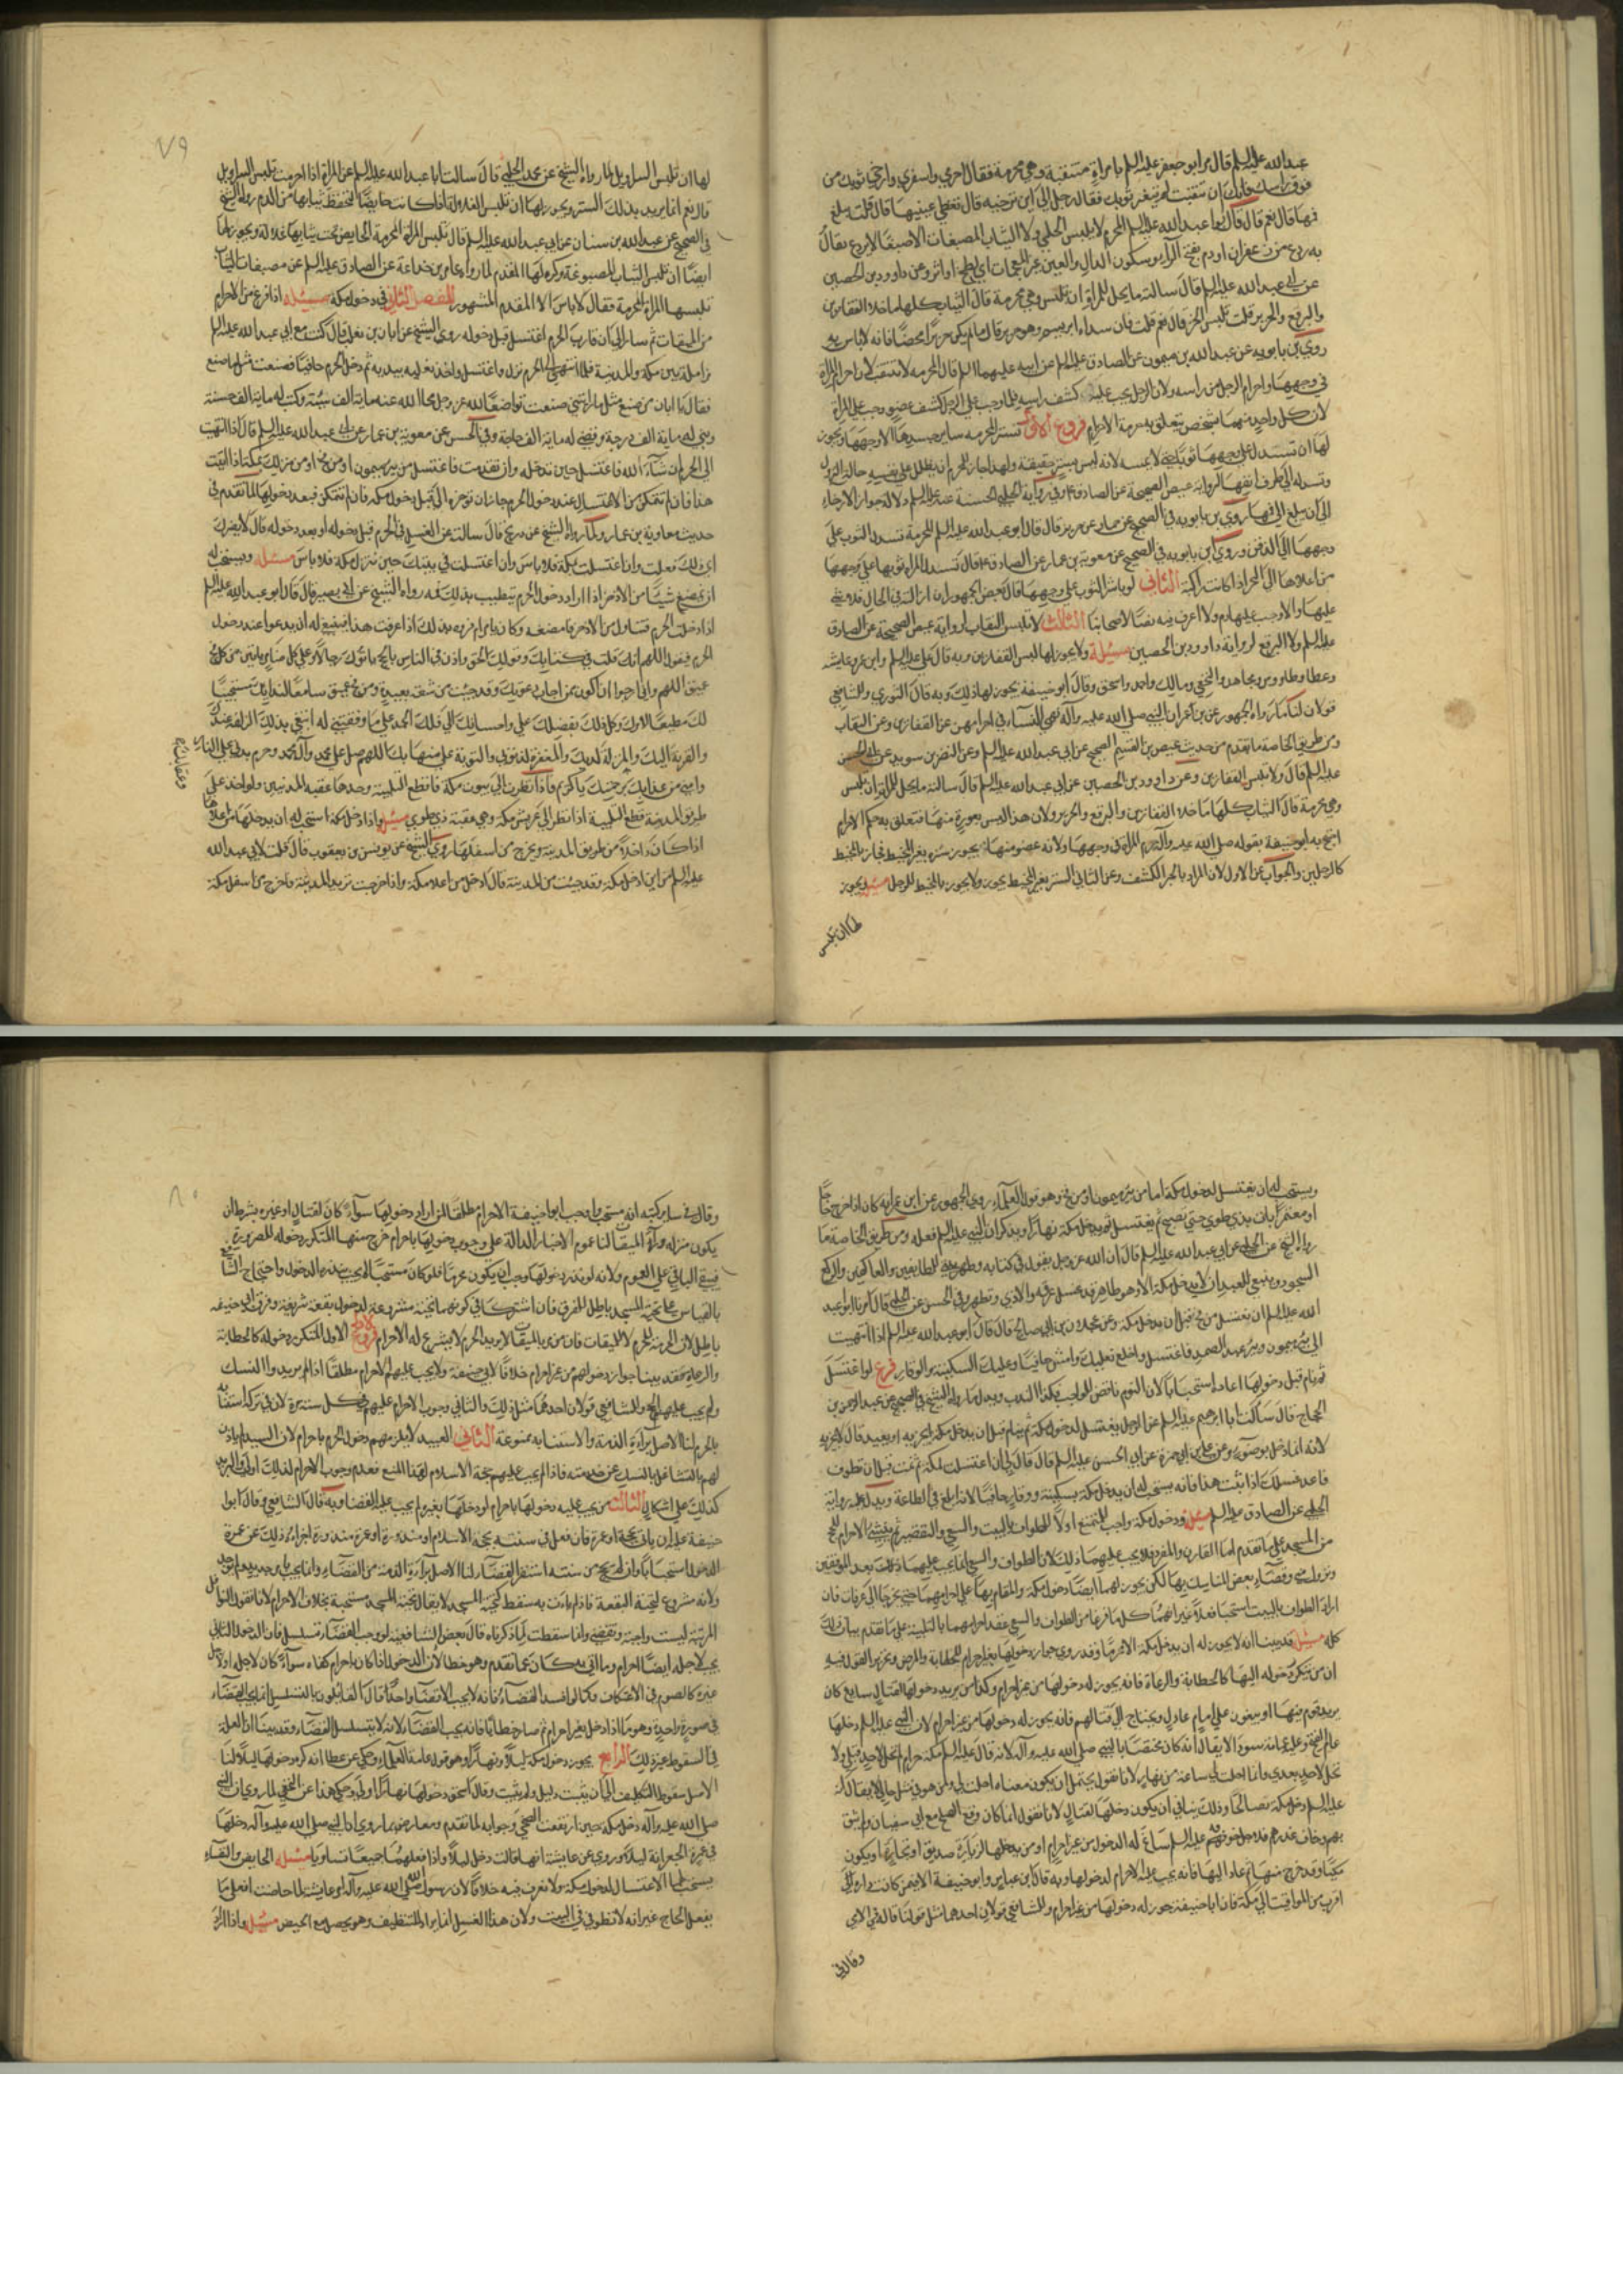 عبد الله عليه السلم قال مر ابو جعفر عليه السلم بامراة متنقبة وهي محرمة فقال احرمي واسفري وارخي ثوبك من
فوق راسك فانك ان تنقبت لم يتغير لونك فقال رجل الى اين ترخيه قال تغطي عينيها قال قلت يبلغ
فمها قال نعم قال وقال ابو عبد الله عليه السلم المحرم لا يلبس الحلي ولا الثياب المصبغات الا صبغا لا يردع يقال
به ردع من زعفران او دم بفتح الراء وسكون الدال والعين غير المعجمات اي لطخ او اثر وعن داود بن الحصين
عن ابي عبد الله عليه السلم قال سالته ما يحل للمراة ان تلبس وهي محرمة قال الثياب كلها ما خلا القفازين
والبرقع والحرير قلت تلبس الخز قال نعم قلت فان سداه ابريسم وهو حرير قال ما لم يكن حريرا محضا فانه لا باس به
روى بن بابويه عن عبد الله بن ميمون عن الصادق عليه السلم عن ابيه عليهما السلم قال المحرمة لا تتنقب لان احرام المراة
في وجهها واحرام الرجل من راسه ولان الرجل يجب عليه كشف راسه فلما وجب على الرجل كشف عضو وجب على المراة
لان كل واحد منهما شخص يتعلق به حرمة الاحرام فروع الاول تستر المحرمه ساير جسدها الا وجهها ويجوز
لها ان تسدل على وجهها ثوبا بحيث لا يمسه لانه ليس بستر حقيقة ولهذا جاز للمحرم ان يظلل على نفسه حالة النزول
وتسدله الى طرف انفها لرواية عيص الصحيحة عن الصادق ع وفي رواية الحلبي الحسنة عنه عليه السلم دلالة جواز الارخاء
الى ان يبلغ الى فمها روى بن بابويه في الصحيح عن حماد عن حريز قال قال ابو عبد الله عليه السلم المحرمة تسدل الثوب على
وجهها الى الذقن وروى ابن بابويه في الصحيح عن معوية بن عمار عن الصادق ع قال تسدل المراة ثوبها على وجهها
من اعلاها الى النحر اذا كانت راكبة الثاني لو باشر الثوب على وجهها قال بعض الجمهور ان ازالته في الحال فلا شي
عليها والا وجب عليها دم ولا اعرف فيه نصا لاصحابنا الثالث لا تلبس النقاب لرواية عيص الصحيحة عن الصادق
عليه السلم ولا البرقع لرواية داوود بن الحصين مسئلة ولا يجوز لها لبس القفازين وبه قال علي عليه السلم وابن عمر وعايشه
وعطا وطاووس ومجاهد والنخعي ومالك واحمد واسحق وقال ابو حنيفة يجوز لها ذلك وبه قال الثوري وللشافعي
قولان لنا ما رواه الجمهور عن بن عمر ان النبي صلى الله عليه وآله نهى النسآء في احرامهن عن القفازين وعن النقاب
ومن طريق الخاصة ما تقدم من حديث عيص بن القسم الصحيح عن ابي عبد الله عليه السلم وعن النضر بن سويد عن ابي الحسن
عليه السلم قال ولا تلبس القفازين وعن داوود بن الحصين عن ابي عبد الله عليه السلم قال سالته ما يحل للمراة ان تلبس
وهي محرمة قال الثياب كلها ما خلا القفازين والبرقع والحرير ولان هذا ليس بعورة منها فتعلق به حكم الاحرام
احتج ابو حنيفة بقوله صلى الله عليه وآله احرام المراة في وجهها ولانه عضو منها يجوز ستره بغير المخيط فجاز بالمخيط
كالرجلين والجواب عن الاول لان المراد بالخبر الكشف وعن الثاني الستر بغير المخيط يجوز ولا يجوز بالمخيط للرجل مسئله يجوز
لها ان تلبس
٧٩
لها ان تلبس السراويل لما رواه الشيخ عن محمد الحلبي قال سالت ابا عبد الله عليه السلم عن المراة اذا احرمت تلبس السراويل
قال نعم انما يريد بذلك الستر ويجوز لها ان تلبس الغلالة اذا كانت حايضا لتحفظ ثيابها من الدم رواه الشيخ
في الصحيح عن عبد الله بن سنان عن ابي عبد الله عليه السلم قال تلبس المراة المحرمة الحايض تحت ثيابها غلالة ويجوز لها
ايضا ان تلبس الثياب المصبوغة وكره لها المفدم لما رواه عامر بن خداعة عن الصادق عليه السلم عن مصبغات الثياب
تلبسها المراة المحرمة فقال لا باس الا المفدم المشهور الفصل الثاني في دخول مكة مسئلة اذا فرغ من الاحرام
من الميقات ثم سار الى ان قارب الحرم اغتسل قبل دخوله روى الشيخ عن ابان بن تغلب قال كنت مع ابي عبد الله عليه السلم
مزاملة بين مكة والمدينة فلما انتهى الى الحرم نزل واغتسل واخذ نعليه بيديه ثم دخل الحرم حافيا فصنعت مثل ما صنع
فقال يا ابان من صنع مثل ما رايتني صنعت تواضعا لله عز وجل محا الله عنه ماية الف سيئة وكتب له ماية الف حسنة
وبنى له ماية الف درجة وقضى له ماية الف حاجة وفي الحسن عن معوية بن عمار عن ابي عبد الله عليه السلم قال اذا انتهيت
الى الحرم ان شآء الله فاغتسل حين تدخله وان تقدمت فاغتسل من بير ميمون او من فخ او من منزلك بمكة اذا ثبت
هذا فان لم يتمكن من الاغتسال عند دخول الحرم جاز ان يوخره الى قبل دخول مكة فان لم يتمكن فبعد دخولها لما تقدم في
حديث معاوية بن عمار ولما رواه الشيخ عن ذريح قال سالته عن الغسل في الحرم قبل دخوله او بعد دخوله قال لا يضرك
اي ذلك فعلت وان اغتسلت بمكة فلا باس وان اغتسلت في بيتك حين تنزل مكة فلا باس مسئله ويستحب له
ان يمضغ شيئا من الاذخر اذا اراد دخول الحرم يتطيب بذلك فمه رواه الشيخ عن ابي بصير قال قال ابو عبد الله عليه السلم
اذا دخلت الحرم فتناول من الاذخر فامضغه وكان يامر ام فروه بذلك اذا عرفت هذا فينبغي له ان يدعوا عند دخول
الحرم فيقول اللهم انك قلت في كتابك وقولك الحق واذن في الناس بالحج ياتوك رجالا وعلى كل ضامر ياتين من كل فج
عميق اللهم واني ارجوا ان اكون ممن اجاب دعوتك وقد جيئت من شقة بعيدة ومن فج عميق سامعا لندايك مستجيبا
لك مطيعا لامرك وكل ذلك بفضلك علي واحسانك الي فلك الحمد على ما وفقتني له ابتغي بذلك الزلفة عندك
والقربة اليك والمنزلة لديك والمغفرة لذنوبي والتوبة علي منها بمنك اللهم صل على محمد وآل محمد وحرم بدني على النار
وعقابك
وامني من عذابك برحمتك يا كريم فاذا نظرت الى بيوت مكة فاقطع التلبية وحدها عقبه المدنيين ولو اخذ على
طريق المدينة قطع التلبية اذا نظر الى عريش مكة وهي عقبة ذي طوى مسئله واذا دخل مكة استحب له ان يدخلها من اعلاها
اذا كان داخلا من طريق المدينة ويخرج من اسفلها روى الشيخ عن يونس بن يعقوب قال قلت لابي عبد الله
عليه السلم من اين ادخل مكة وقد جيئت من المدينة قال ادخل من اعلا مكة واذا خرجت تريد المدينة فاخرج من اسفل مكة
ويستحب له ان يغتسل لدخول مكة اما من بير ميمون او من فخ وهو قول العلمآء روى الجمهور عن ابن عمر انه كان اذا خرج حاجا
او معتمرا بات بذي طوى حتى يصبح ثم يغتسل ثم يدخل مكة نهارا ويذكر ان النبي عليه السلم فعله ومن طريق الخاصة ما
رواه الشيخ عن الحلبي عن ابي عبد الله عليه السلم قال ان الله عز وجل يقول في كتابه وطهر بيتي للطايفين والعاكفين والركع
السجود وينبغي للعبد ان لا يدخل مكة الا وهو طاهر قد غسل عرقه والاذى وتطهر وفي الحسن عن الحلبي قال امرنا ابو عبد
الله عليه السلم ان نغتسل من فخ قبل ان ندخل مكة وعن عجلان بن ابي صالح قال قال ابو عبد الله عليه السلم اذا انتهيت
الى بير ميمون وبير عبد الصمد فاغتسل واخلع نعليك وامش حافيا وعليك السكينة والوقار فرع لو اغتسل
ثم نام قبل دخولها اعاده استحبابا لان النوم ناقض للواجب فكذا الندب ويدل ما رواه الشيخ في الصحيح عن عبد الرحمن بن
الحجاج قال سالت ابا ابرهيم عليه السلم عن الرجل يغتسل لدخول مكة ثم ينام قبل ان يدخل مكة ايجزيه او يعيد قال لا يجزيه
لانه انما دخل بوضوء وعن علي بن ابي حمزة عن ابي الحسن عليه السلم قال قال لي ان اغتسلت لمكة ثم نمت قبل ان تطوف
فاعد غسلك اذا ثبت هذا فانه يستحب له ان يدخل مكة بسكينة ووقار حافيا لانه ابلغ في الطاعة ويدل عليه رواية
الحلبي عن الصادق عليه السلم مسئله ودخول مكة واجب للمتمتع اولا للطواف بالبيت والسعي والتقصير ثم ينشئ الاحرام للحج
من المسجد على ما تقدم اما القارن والمفرد فلا يجب عليهما ذلك لان الطواف والسعي انما يجب عليهما ذلك بعد الموقفين
ونزول منى وقضآء بعض المناسك بها لكن يجوز لهما ايضا دخول مكة والمقام بها على احرامهما حتى يخرجا الى عرفات فان
ارادا الطواف بالبيت استحبابا فعلا غير انهما كل ما فرغا من الطواف والسعي عقدا احرامهما بالتلبية على ما تقدم بيان ذلك
كله مسئله قد بينا انه لا يجوز له ان يدخل مكة الا محرما وقد روى جواز دخولها بغير احرام للحطابة والمرضى وتحرير القول فيه
ان من يتكرر دخوله اليها كالحطابة والرعاة فانه يجوز له دخولها من غير احرام وكذا من يريد دخولها لقتال سايغ كان
يرتد قوم فيها او يبغون على امام عادل ويحتاج الى قتالهم فانه يجوز له دخولها من غير احرام لان النبي عليه السلم دخلها
عام الفتح وعليه عمامة سودا لا يقال انه كان مختصا بالنبي صلى الله عليه وآله لانه قال عليه السلم مكة حرام لم تحل لاحد قبلي ولا
تحل لاحد بعدي وانما احلت لي ساعة من نهار لانا نقول يحتمل ان يكون معناه احلت لي ولمن هو في مثل حالي لا يقال انه
عليه السلم دخل مكة مصالحا وذلك ينافي ان يكون دخلها لقتال لانا نقول انما كان وقع الصلح مع ابي سفيان ولم يثق
بهم وخاف غدرهم فلاجل خوفه عليه السلم ساغ له الدخول من غير احرام او من يدخلها لزيارة صديق او تجارة او يكون
مكيا وقد خرج منها ثم عاد اليها فانه يجب عليه الاحرام لدخولها وبه قال ابن عباس وابو حنيفة الا فيمن كانت داره الى
اقرب من المواقيت الى مكة فان ابا حنيفة جوز له دخولها من غير احرام وللشافعي قولان احدهما مثل قولنا قاله في الام
وقال في
٨٠
وقال في ساير كتبه انه مستحب واوجب ابو حنيفة الاحرام مطلقا لمن اراد دخولها سوآء كان لقتال او غيره بشرط ان
يكون منزله ورآء الميقات لنا عموم الاخبار الدالة على وجوب دخولها باحرام خرج منها المتكرر دخوله للضرورة
فيبقى الباقي على العموم ولانه لو نذر دخولها وجب ان يكون محرما فلو كان مستحبا لم يجب بنذر الدخول واحتجاج الشافعي
بالقياس على تحية المسجد باطل للفرق فان اشتركا في كونهما تحية مشروعة لدخول بقعة شريفة وفرق ابي حنيفه
باطل لان الحرمة للحرم لا للميقات فان من مر بالميقات لا يريد الحرم لا يشرع له الاحرام فروع الاول المتكرر دخوله كالحطابة
والرعاة قد بينا جواز دخولهم من غير احرام خلافا لابي حنيفة ولا يجب عليهم الاحرام مطلقا اذا لم يريدوا النسك
ولم يجب عليهم الحج وللشافعي قولان احدهما مثل ذلك والثاني وجوب الاحرام عليهم في كل سنة مرة لان في تركه استهانة
بالحرم لنا الاصل برآءة الذمة والاستهانة ممنوعة الثاني العبيد لا يلزمهم دخول الحرم باحرام لان السيد لم ياذن
لهم بالتشاغل بالنسك عن خدمته فاذا لم يجب عليهم حجة الاسلام لهذا المنع فعدم وجوب الاحرام لذلك اولى والبريد
كذلك على اشكال الثالث من يجب عليه دخولها باحرام لو دخلها بغير احرام لم يجب عليه القضا وبه قال الشافعي وقال ابوا
حنيفة عليه ان ياتي بحجة او عمرة فان فعل في سنته بحجة الاسلام او منذورة او عمرة منذورة اجزاءه ذلك عن عمرة
الدخول استحبابا وان لم يحج من سنته استقر القضآء لنا الاصل برآءة الذمة من القضآء وانما يجب بامر جديد ولم يوجد
ولانه مشروع لتحية البقعة فاذا لم يات به سقط كتحية المسجد لا يقال تحية المسجد مستحبة بخلاف الاحرام لانا نقول النوافل
المرتبة ليست واجبة وتقضى وانما سقطت لما ذكرناه قال بعض الشافعية لو وجب القضآء تسلسل فان الدخول الثاني
يجب لاجله ايضا احرام وما اتى به كان عما تقدم وهو خطا لان الدخول اذا كان باحرام كفاه سوآء كان لاجله او لاجل
غيره كالصوم في الاعتكاف وكما لو افسد القضآء فانه لا يجب الا قضآء واحد قال القايلون بالتسلسل انما يجب القضآء
في صورة واحدة وهو ما اذا دخل بغير احرام ثم صار حطابا فانه يجب القضآء لانه لا يتسلسل القضآء وقد بينا ان العلة
في السقوط غير ذلك الرابع يجوز دخول مكة ليلا ونهارا وهو قول عامة العلمآء وحكي عن عطا انه كره دخولها ليلا لنا
الاصل سقوط التكليف الى ان يثبت دليل ولم يثبت وقال اسحق دخولها نهارا اولى وحكي هذا عن النخعي لما روى ان النبي
صلى الله عليه وآله دخل مكة حين ارتفعت الضحى وجوابه لما تقدم ومعارض بما روى ان النبي صلى الله عليه وآله دخلها
في عمرة الجعرانة ليلا وروي عن عايشة انها قالت دخل ليلا واذا فعلهما جميعا تساويا مسئله الحايض والنفسآء
يستحب لهما الاغتسال لدخول مكة ولا نعرف فيه خلافا لان رسول الله صلى الله عليه وآله امر عايشة لما حاضت افعلي ما
يفعل الحاج غير انه لا تطوفي في البيت ولان هذا الغسل انما يراد للتنظيف وهو يحصل مع الحيض مسئله واذا اراد